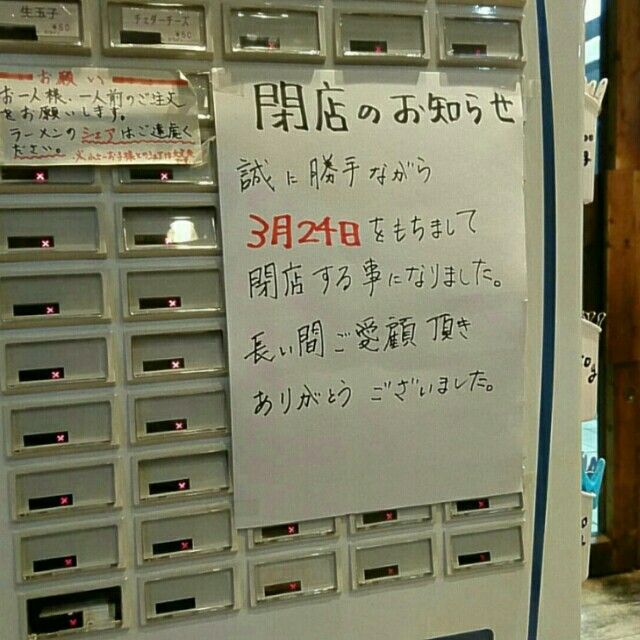 生玉子
¥50
チェダーチーズ
¥50
お願い
お一人様、一人前のご注文
をお願いします。
ラーメンのシェアはご遠慮く
ださい。
閉店のお知らせ
誠に勝手ながら
3月24日をもちまして
閉店する事になりました。
長い間ご愛顧頂き
ありがとうございました。